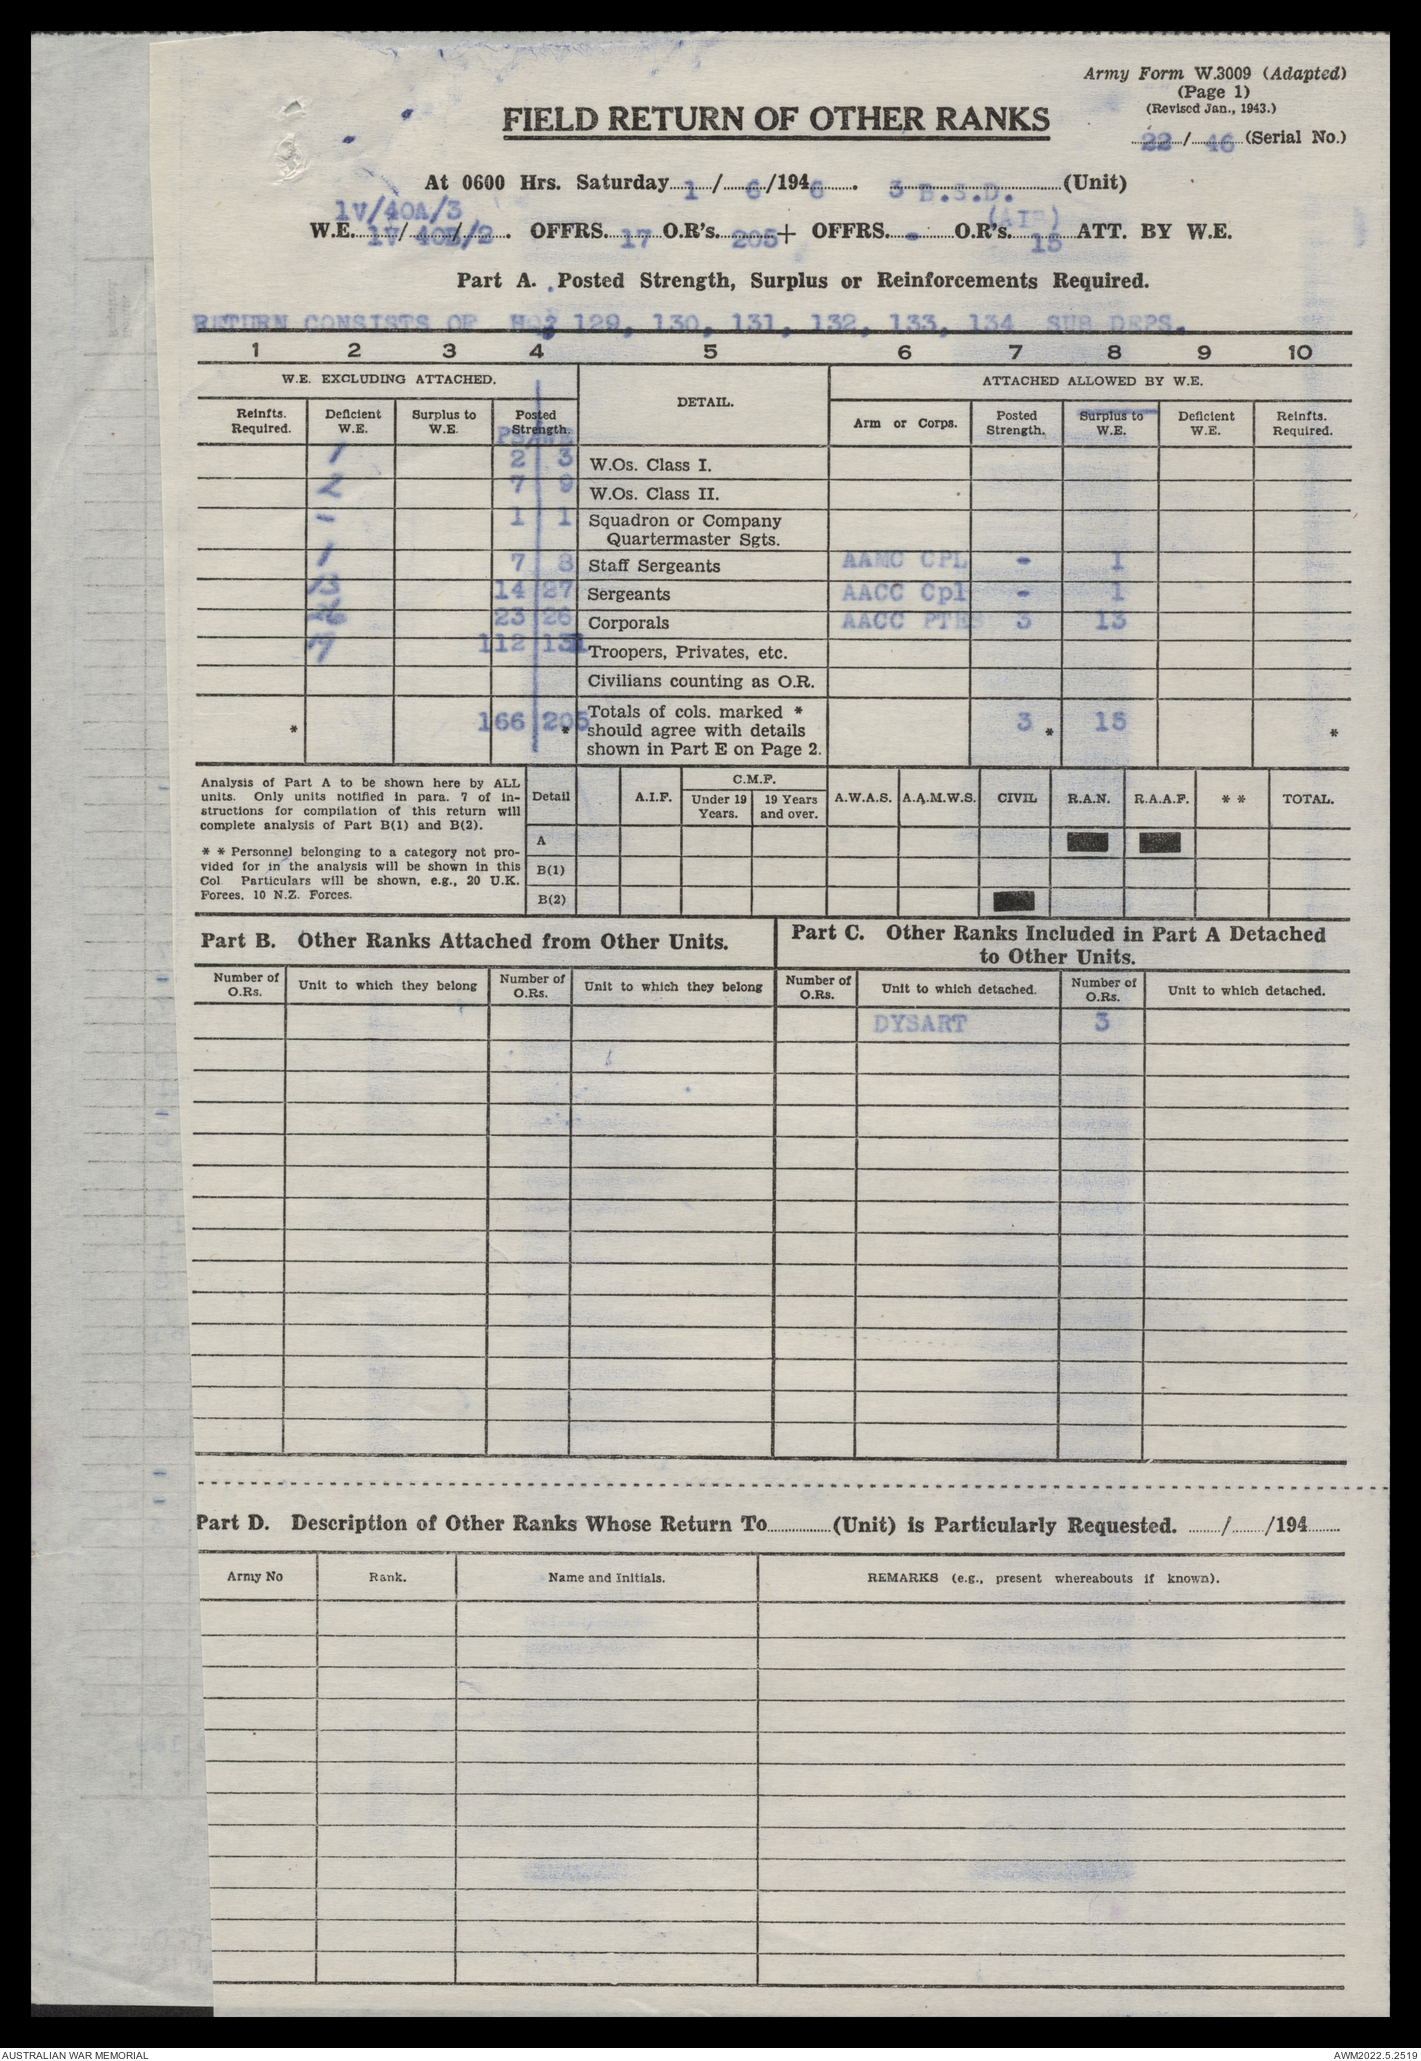 Army Form W.3009 (Adapted)
(Page 1)
(Revised Jan., 1943.)
FIELD RETURN OF OTHER RANKS
22/46 (Serial No.)
At 0600 Hrs. Saturday 1/6/1946. 3 B.S.D. (Unit)
1V/40A/3 (AIF)
W.E. 1V/40B/2. OFFRS. 17 O.R's. 205 + OFFRS. - O.R's. 15 ATT. BY W.E.
Part A. Posted Strength, Surplus or Reinforcements Required.
RETURN CONSISTS OF HQ; 129, 130, 131, 132, 133, 134 SUB DEPS.
1 2 3 4 5 6 7 8 9 10
W.E. EXCLUDING ATTACHED. DETAIL. ATTACHED ALLOWED BY W.E.
Reinfts. Required. Deficient W.E. Surplus to W.E. Posted Strength. Arm or Corps. Posted Strength. Surplus to W.E. Deficient W.E. Reinfts. Required.
PS WE
1 2 3 W.Os. Class I.
2 7 9 W.Os. Class II.
- 1 1 Squadron or Company Quartermaster Sgts.
1 7 8 Staff Sergeants AAMC CPL - 1
13 14 27 Sergeants AACC Cpl - 1
23 26 Corporals AACC PTES 3 13
112 131 Troopers, Privates, etc.
Civilians counting as O.R.
* 166 205 * Totals of cols. marked * should agree with details shown in Part E on Page 2. 3 * 15 *
Analysis of Part A to be shown here by ALL
units. Only units notified in para. 7 of in-
structions for compilation of this return will
complete analysis of Part B(1) and B(2).
* * Personnel belonging to a category not pro-
vided for in the analysis will be shown in this
Col Particulars will be shown, e.g., 20 U.K.
Forces. 10 N.Z. Forces.
Detail A.I.F. C.M.F. Under 19 Years. 19 Years and over. A.W.A.S. A.A.M.W.S. CIVIL R.A.N. R.A.A.F. * * TOTAL.
A
B(1)
B(2)
Part B. Other Ranks Attached from Other Units.
Part C. Other Ranks Included in Part A Detached
to Other Units.
Number of O.Rs. Unit to which they belong Number of O.Rs. Unit to which they belong Number of O.Rs. Unit to which detached. Number of O.Rs. Unit to which detached.
DYSART 3
Part D. Description of Other Ranks Whose Return To (Unit) is Particularly Requested. / /194
Army No Rank. Name and Initials. REMARKS (e.g., present whereabouts if known).
AUSTRALIAN WAR MEMORIAL AWM2022.5.2519